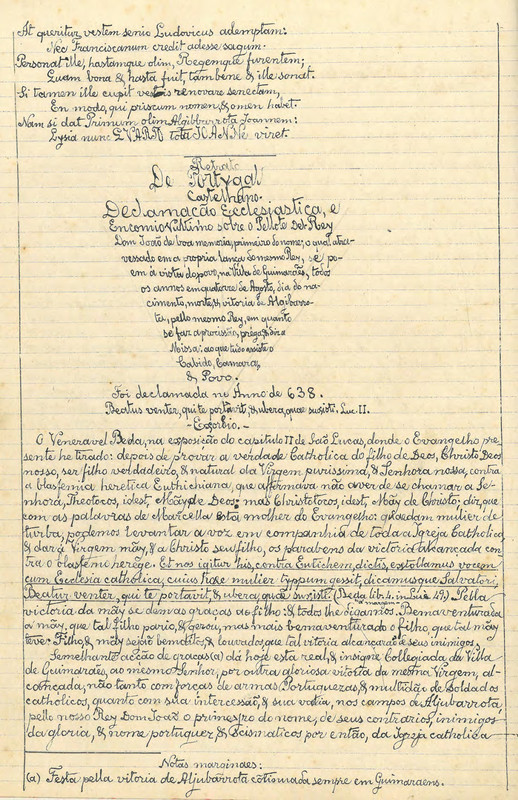 At queritur, vestem senio Ludovicus ademptam:
Nec Franciscanum credit adesse sagum.
Personat ille, hastamque olim, Regemque furentem;
Quam bona & hasta fuit, tam bene & ille sonat.
Si tamen ille cupit vestis renovare senectam,
En modo, qui priscum nomen, & omen habet.
Nam si dat Primum olim Algibbarrota Joannem:
Lysia nunc QVARTO tota JOANNE viret.
Retrato
De Portvgal
Castelhano.
Declamação Ecclesiastica, e
Encomio Nultimo sobre o Pellote Del-Rey
Dom João de boa memoria, primeiro do nome, o qual atra-
vessado em a propria lança do mesmo Rey, se po-
em á vista do povo, na Villa de Guimarães, todos
os annos em quatorze de Agosto, dia do na-
cimento, morte, & vitoria de Algibarro-
ta, pello mesmo Rey, em quanto
se faz a procissão, préga, & diz a
Missa: ao que tudo assiste o
Cabido, Camara,
& Povo.
Foi declamada no Anno de 638.
Beatus venter, qui te portavit, & ubera, quae suxisti. Luc II.
- Exordio. -
O Veneravel Beda, na exposição do capitulo II de São Lucas, donde o Evangelho pre-
sente he tirado: depois de provar a verdade Catholica do filho de Deos, Christo Deos
nosso, ser filho verdadeiro, & natural da Virgem purissima, & Senhora nossa, contra
a blasfemia heretica Euthichiana, que affirmava não aver de se chamar a Se-
nhora, Theotocos, idest, Mãy de Deos: mas Christotocos, idest, Mãy de Christo; diz, que
com as palavras de Marcella esta molher do Evangelho: quaedam mulier de
turba, podemos levantar a voz em companhia de toda a Igreja Catholica,
& dar á Virgem mãy, & a Christo seu filho, os parabens da victoria alcançada con-
tra o blasfemo herege. Et nos igitur his, contra Eutichem, dictis, extollamus vocem
cum Ecclesia catholica, cuius haec mulier typpum gessit, dicamusque Salvatori,
Beatur venter, qui te portavit, & ubera, quae suxisti. (Beda lib. 4. in Luc. 49) Pella
victoria da mãy se demas graças ao filho: & todos lhe digamos: Bemaventurada
a mãy, que tal filho pario, & gerou, mas mais bemaventurado o filho, que tal mãy
teve: Filho, & mãy sejão bemditos, & louvados, que tal vitoria alcançarão de seus inimigos.
Semelhante acção de graças (a) dá hoje esta real, & insigne Collegiada da Villa
de Guimarães, ao mesmo Senhor, por outra gloriosa vitoria da mesma Virgem, al-
cançada, não tanto com forças de armas Portuguezas, & multidão de Soldados
catholicos, quanto com sua intercessão, & sua valia, nos campos de Aljubarrota,
pello nosso Rey Dom João o primeiro do nome, de seus contrarios, inimigos
da gloria, & nome portuguez, & Scismaticos por então, da Igreja catholica
Notas marginaes:
(a) Festa pella vitoria de Aljubarrota cotinuada sempre em Guimaraens.